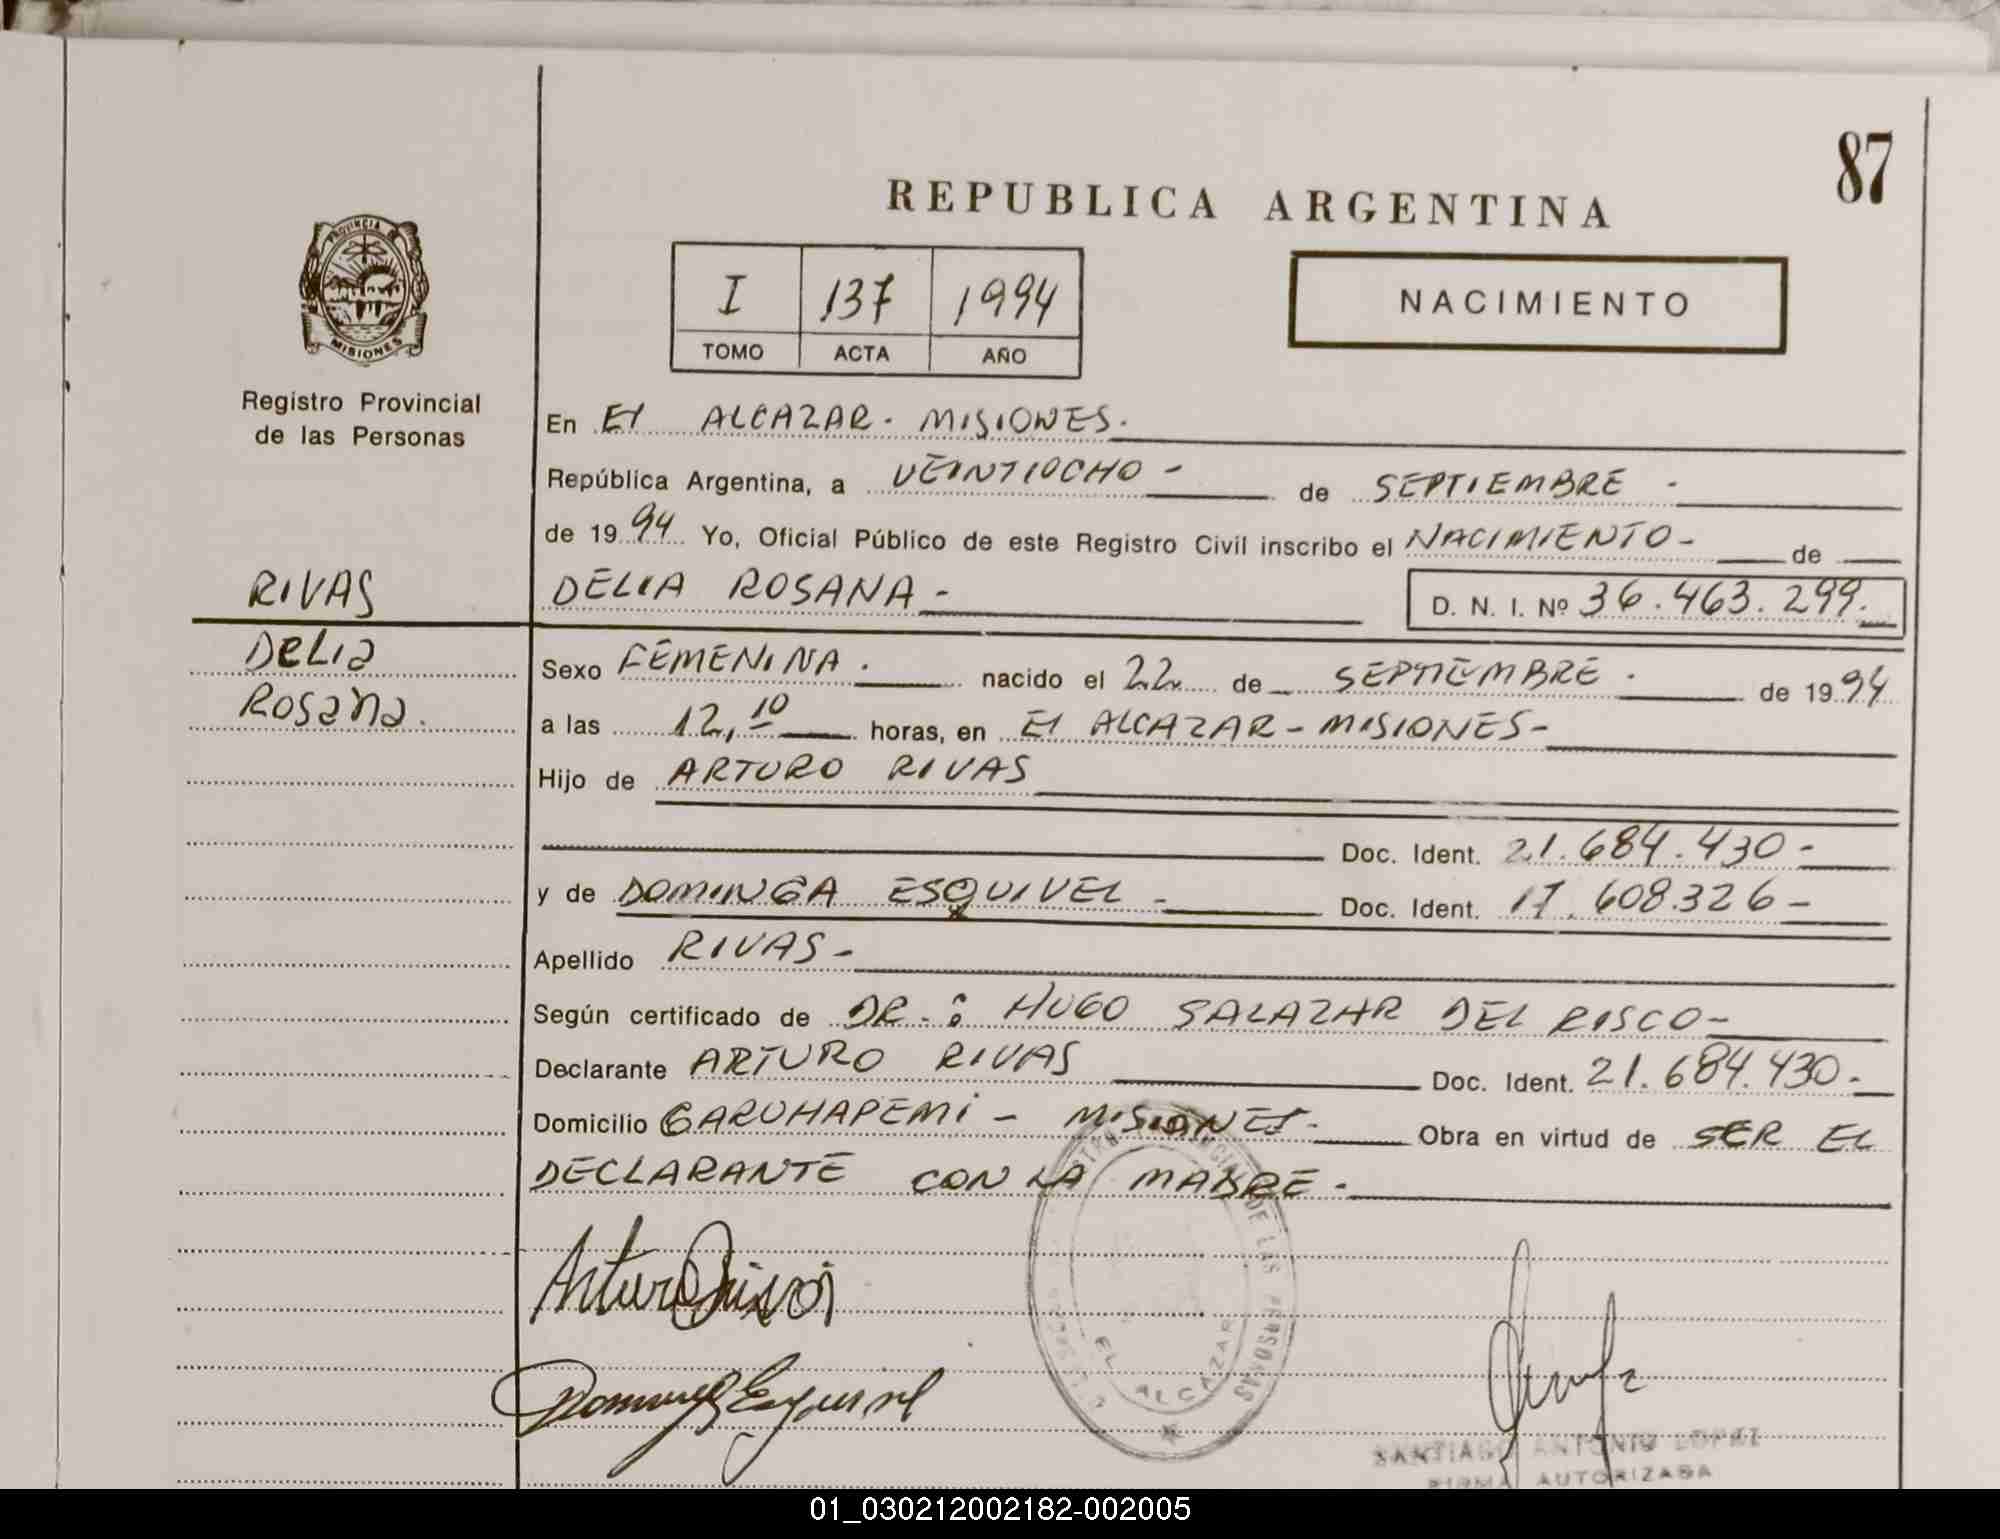 87
REPUBLICA ARGENTINA
PROVINCIA DE
MISIONES
Registro Provincial
de las Personas
I 137 1994
TOMO ACTA AÑO
NACIMIENTO
En El ALCAZAR - MISIONES.
República Argentina, a VEINTIOCHO - de SEPTIEMBRE -
de 1994 Yo, Oficial Público de este Registro Civil inscribo el NACIMIENTO - de
RIVAS
DELIA ROSANA - D. N. I. Nº 36.463.299.
DELIA
Sexo FEMENINA. nacido el 22 de SEPTIEMBRE. de 1994
ROSANA.
a las 12,10 horas, en El ALCAZAR - MISIONES -
Hijo de ARTURO RIVAS
Doc. Ident. 21.684.430 -
y de DOMINGA ESQUIVEL - Doc. Ident. 17.608.326 -
Apellido RIVAS -
Según certificado de DR.: HUGO SALAZAR DEL RISCO -
Declarante ARTURO RIVAS Doc. Ident. 21.684.430 -
Domicilio GARUHAPEMI - MISIONES - Obra en virtud de SER EL
DECLARANTE CON LA MADRE -
DE LAS PERSONAS
EL ALCAZAR
Arturo Rivas
Dominga Esquivel
SANTIAGO ANTONIO LOPEZ
FIRMA AUTORIZADA
01_030212002182-002005